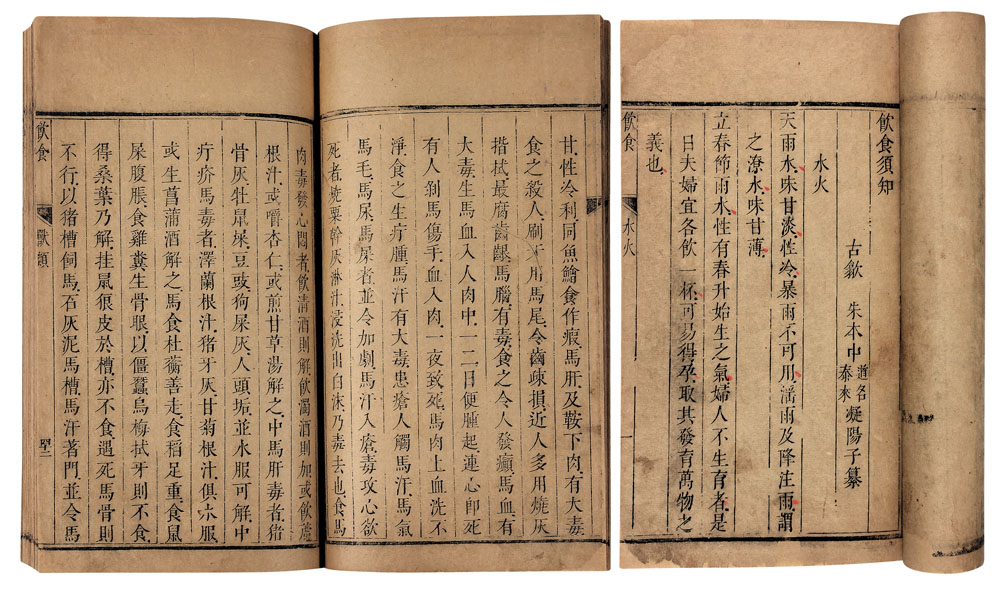 飲食須知
古歙 朱本中 道名泰來 凝陽子纂
水火
天雨水.味甘淡.性冷.暴雨不可用.潘雨及降注雨.謂
之潦水.味甘薄.
立春節雨水.性有春升始生之氣.婦人不生育者.是
日夫婦宜各飲一杯.可易得孕.取其發育萬物之
義也.
飲食 水火 一
甘性冷利.同魚鱠食作瘕.馬肝及鞍下肉.有大毒
食之殺人.刷牙用馬尾.令齒疎損.近人多用燒灰
揩拭.最腐齒齦.馬臕有毒.食之令人發癲.馬血有
大毒.生馬血入人肉中.一二日便腫起.連心卽死
有人剝馬傷手.血入肉.一夜致死.馬肉上血洗不
淨.食之生疔腫.馬汗有大毒.患瘡人觸馬汗.馬氣
馬毛.馬尿.馬屎者.並令加劇.馬汗入瘡.毒攻心欲
死者.燒粟幹灰淋汁.浸洗出白沫.乃毒去也.食馬
肉毒發心悶者.飲清酒則解.飲濁酒則加.或飲蘆
根汁.或嚼杏仁.或煎甘草湯解之.中馬肝毒者.猪
骨灰.牡鼠屎.豆豉.狗屎灰.人頭垢.並水服可解.中
疔瘡馬毒者.澤蘭根汁.猪牙灰.甘菊根汁.俱水服
或生菖蒲酒解之.馬食杜蘅善走.食稻足重.食鼠
屎腹脹.食雞糞生骨眼.以僵蠶烏梅拭牙.則不食
得桑葉乃解.挂鼠狼皮於槽.亦不食.遇死馬骨則
不行.以猪槽飼馬.石灰泥馬槽.馬汗著門.並令馬
飲食 獸類